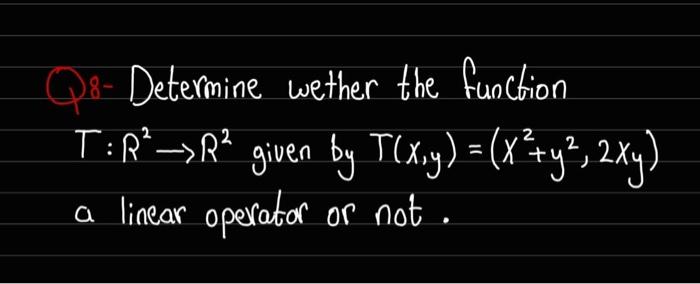 Q8- Determine wether the function
T: R² → R² given by T(x,y) = (x²+y², 2xy)
a linear operator or not.